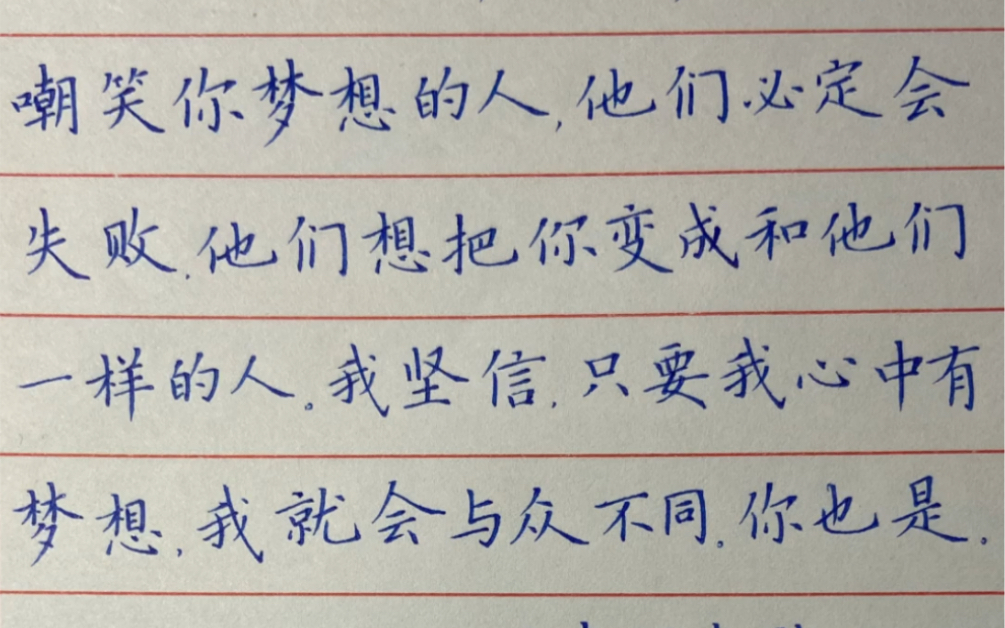 嘲笑你梦想的人,他们必定会
失败,他们想把你变成和他们
一样的人。我坚信,只要我心中有
梦想,我就会与众不同,你也是.